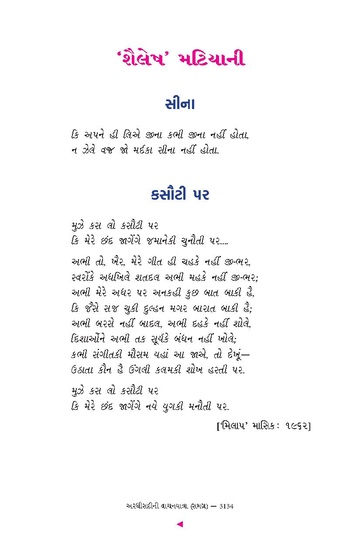 ‘શૈલેષ’ મટિયાની
સીના
કિ અપને હી લિએ જીના કભી જીના નહીં હોતા,
ન ઝેલે વજ્ર જો મર્દકા સીના નહીં હોતા.
કસૌટી પર
મુઝે કસ લો કસૌટી પર
કિ મેરે છંદ જાગેંગે જમાનેકી ચુનૌતી પર....
અભી તો, ખૈર, મેરે ગીત હી ચહકે નહીં જી-ભર,
સ્વરોંકે અધખિલે શતદલ અભી મહકે નહીં જી-ભર;
અભી મેરે અધર પર અનકહી કુછ બાત બાકી હૈ,
કિ જૈસે સજ ચુકી દુલ્હન મગર બારાત બાકી હૈ;
અભી બરસે નહીં બાદલ, અભી દહકે નહીં શોલે,
દિશાઓંને અભી તક સૂર્યકે બંધન નહીં ખોલે;
કભી સંગીતકી મૌસમ યહાં આ જાએ, તો દેખૂં—
ઉઠાતા કૌન હૈ ઉંગલી કલમકી શોખ હસ્તી પર.
મુઝે કસ લો કસૌટી પર
કિ મેરે છંદ જાગેંગે નયે યુગકી મનૌતી પર.
[‘મિલાપ’ માસિક : ૧૯૬૨]
અરધીસદીની વાચનયાત્રા (સમગ્ર) — 3134